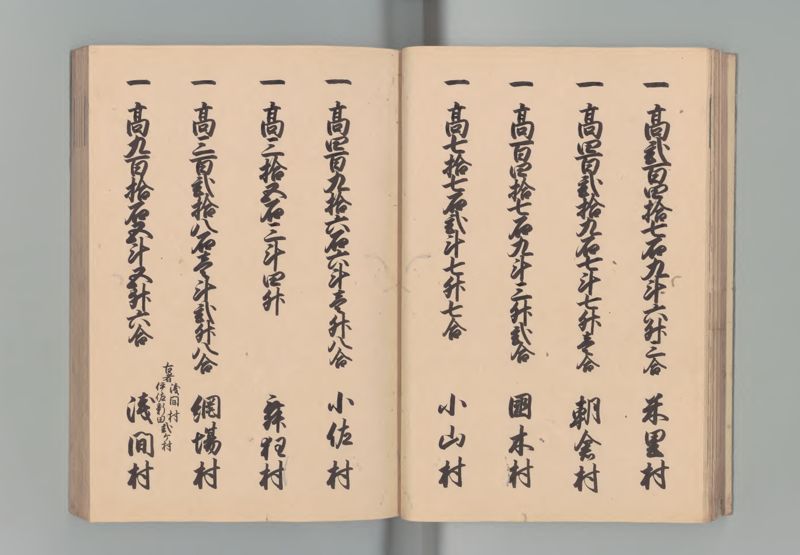 一 高弐百四拾七石九斗六升三合 米里村
一 高四百弐拾九石七斗七升壱合 朝倉村
一 高百四拾七石九斗三升弐合 國木村
一 高七拾七石弐斗七升七合 小山村
一 高四百九拾六石六斗壱升八合 小佐村
一 高三拾五石三斗四升 舞狂村
一 高三百弐拾八石壱斗弐升八合 網場村
古者浅間村
伊佐新田弐ヶ村
一 高九百拾石五斗五升六合 浅間村